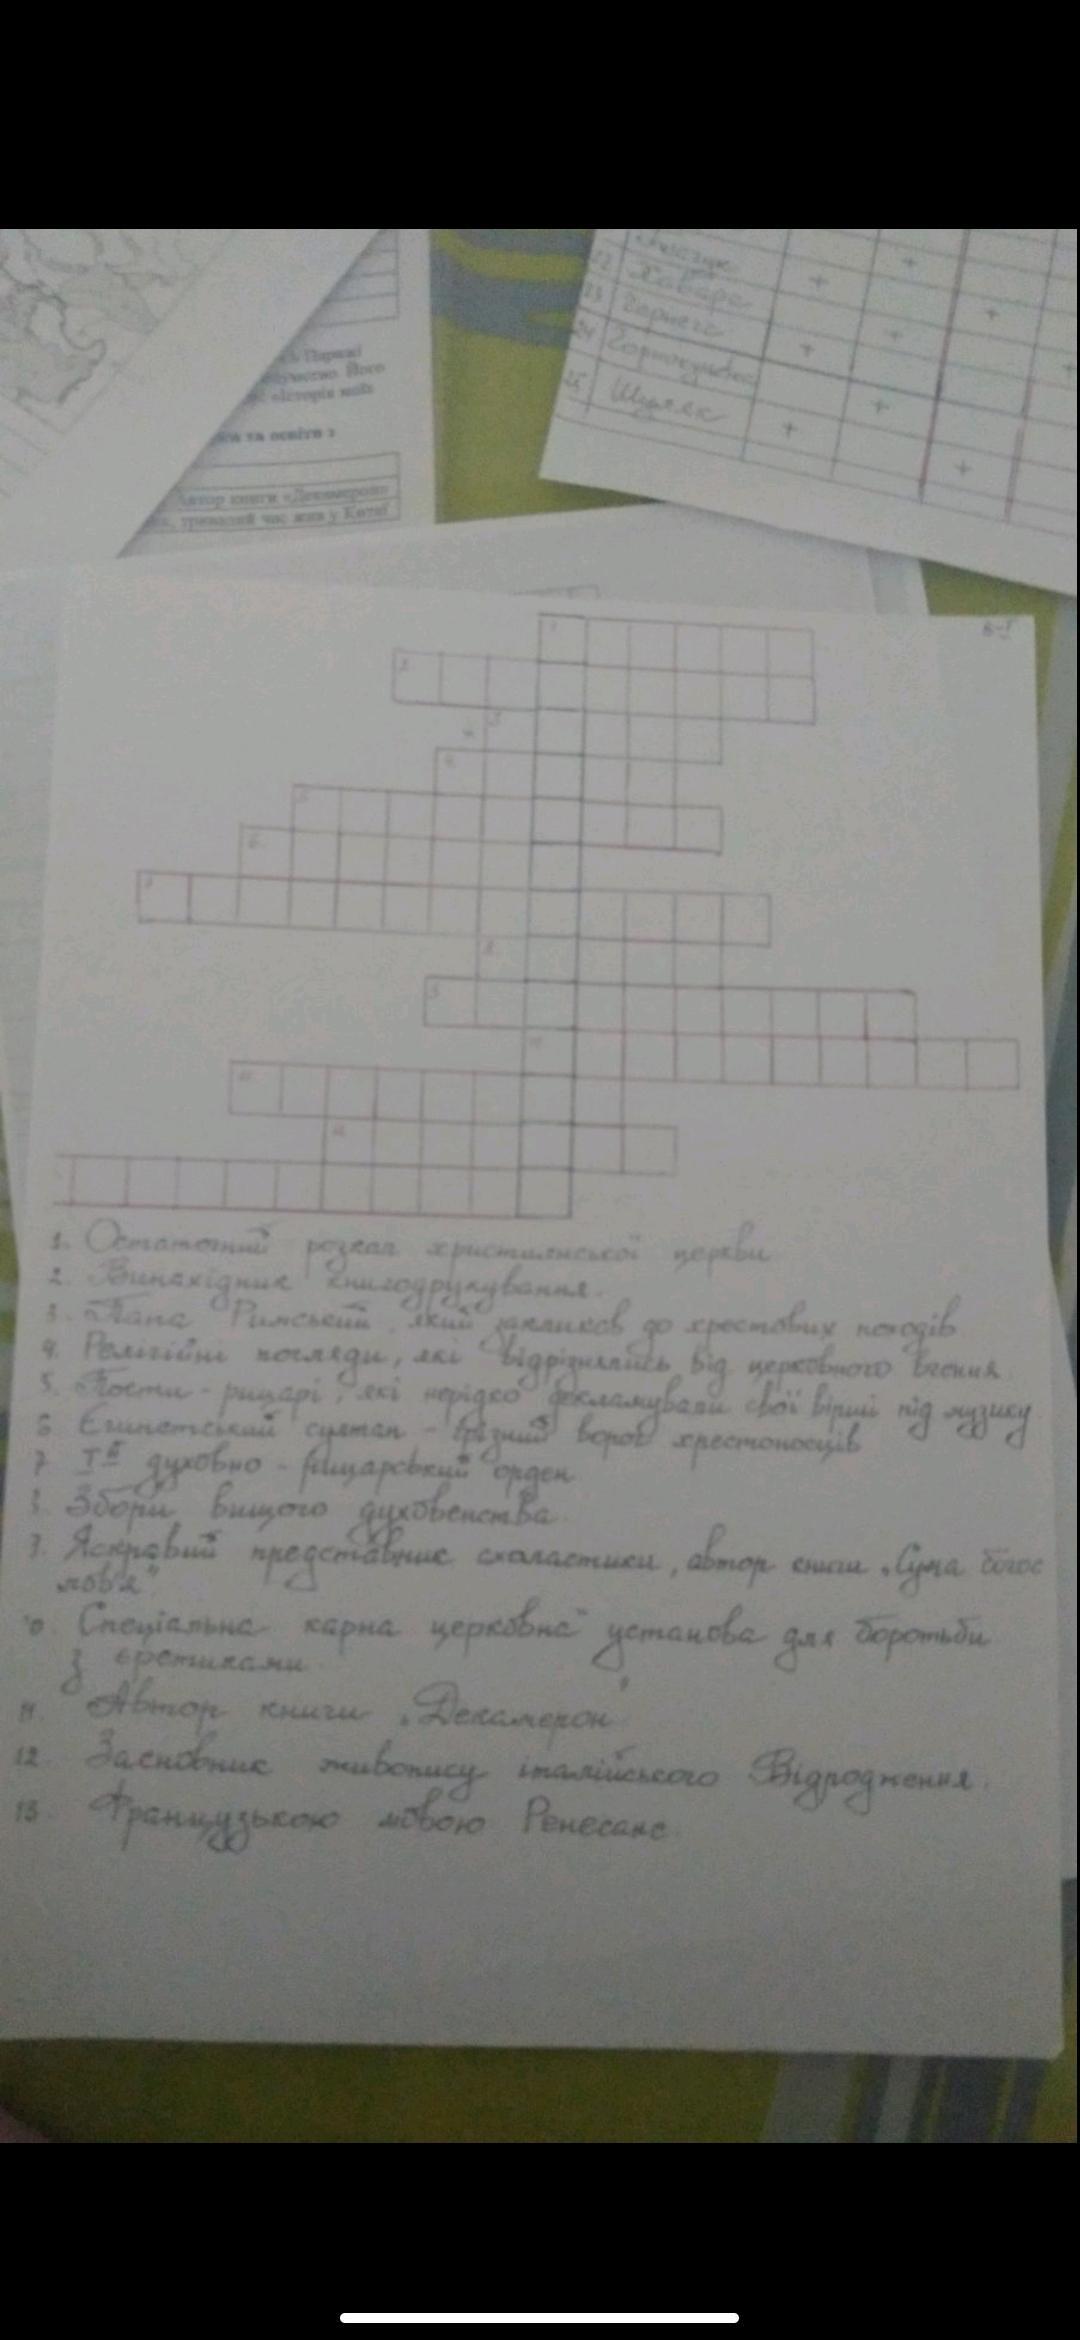 Хавара
24
Шуляк
Парижі
Його
«Історія моїх
та освіти з
Автор книги «Декамерон»
тривалий час жив у Китаї
1
2
3
4
5
6
7
8
9
10
11
12
1. Остаточний розкол християнської церкви
2. Винахідник книгодрукування.
3. Папа Римський, який закликав до хрестових походів
4. Релігійні погляди, які відрізнялись від церковного вчення
5. Поети - рицарі, які нерідко декламували свої вірші під музику
6 Єгипетський султан - грізний ворог хрестоносців
7 Iй духовно - рицарський орден
8. Збори вищого духовенства
9. Яскравий представник схоластики, автор книги „Сума богос
лов'я".
10 Спеціальна карна церковна установа для боротьби
з єретиками
11. Автор книги „Декамерон"
12. Засновник живопису італійського Відродження.
13. Французькою мовою Ренесанс